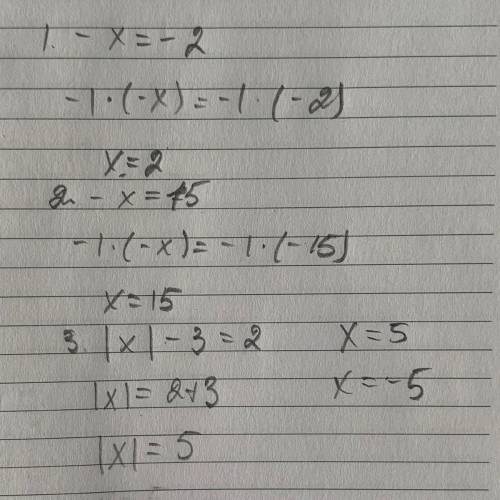 1. - x = - 2
-1 · (-x) = -1 · (-2)
x = 2
2. - x = -15
-1 · (-x) = -1 · (-15)
x = 15
3. |x| - 3 = 2
|x| = 2+3
|x| = 5
x = 5
x = -5